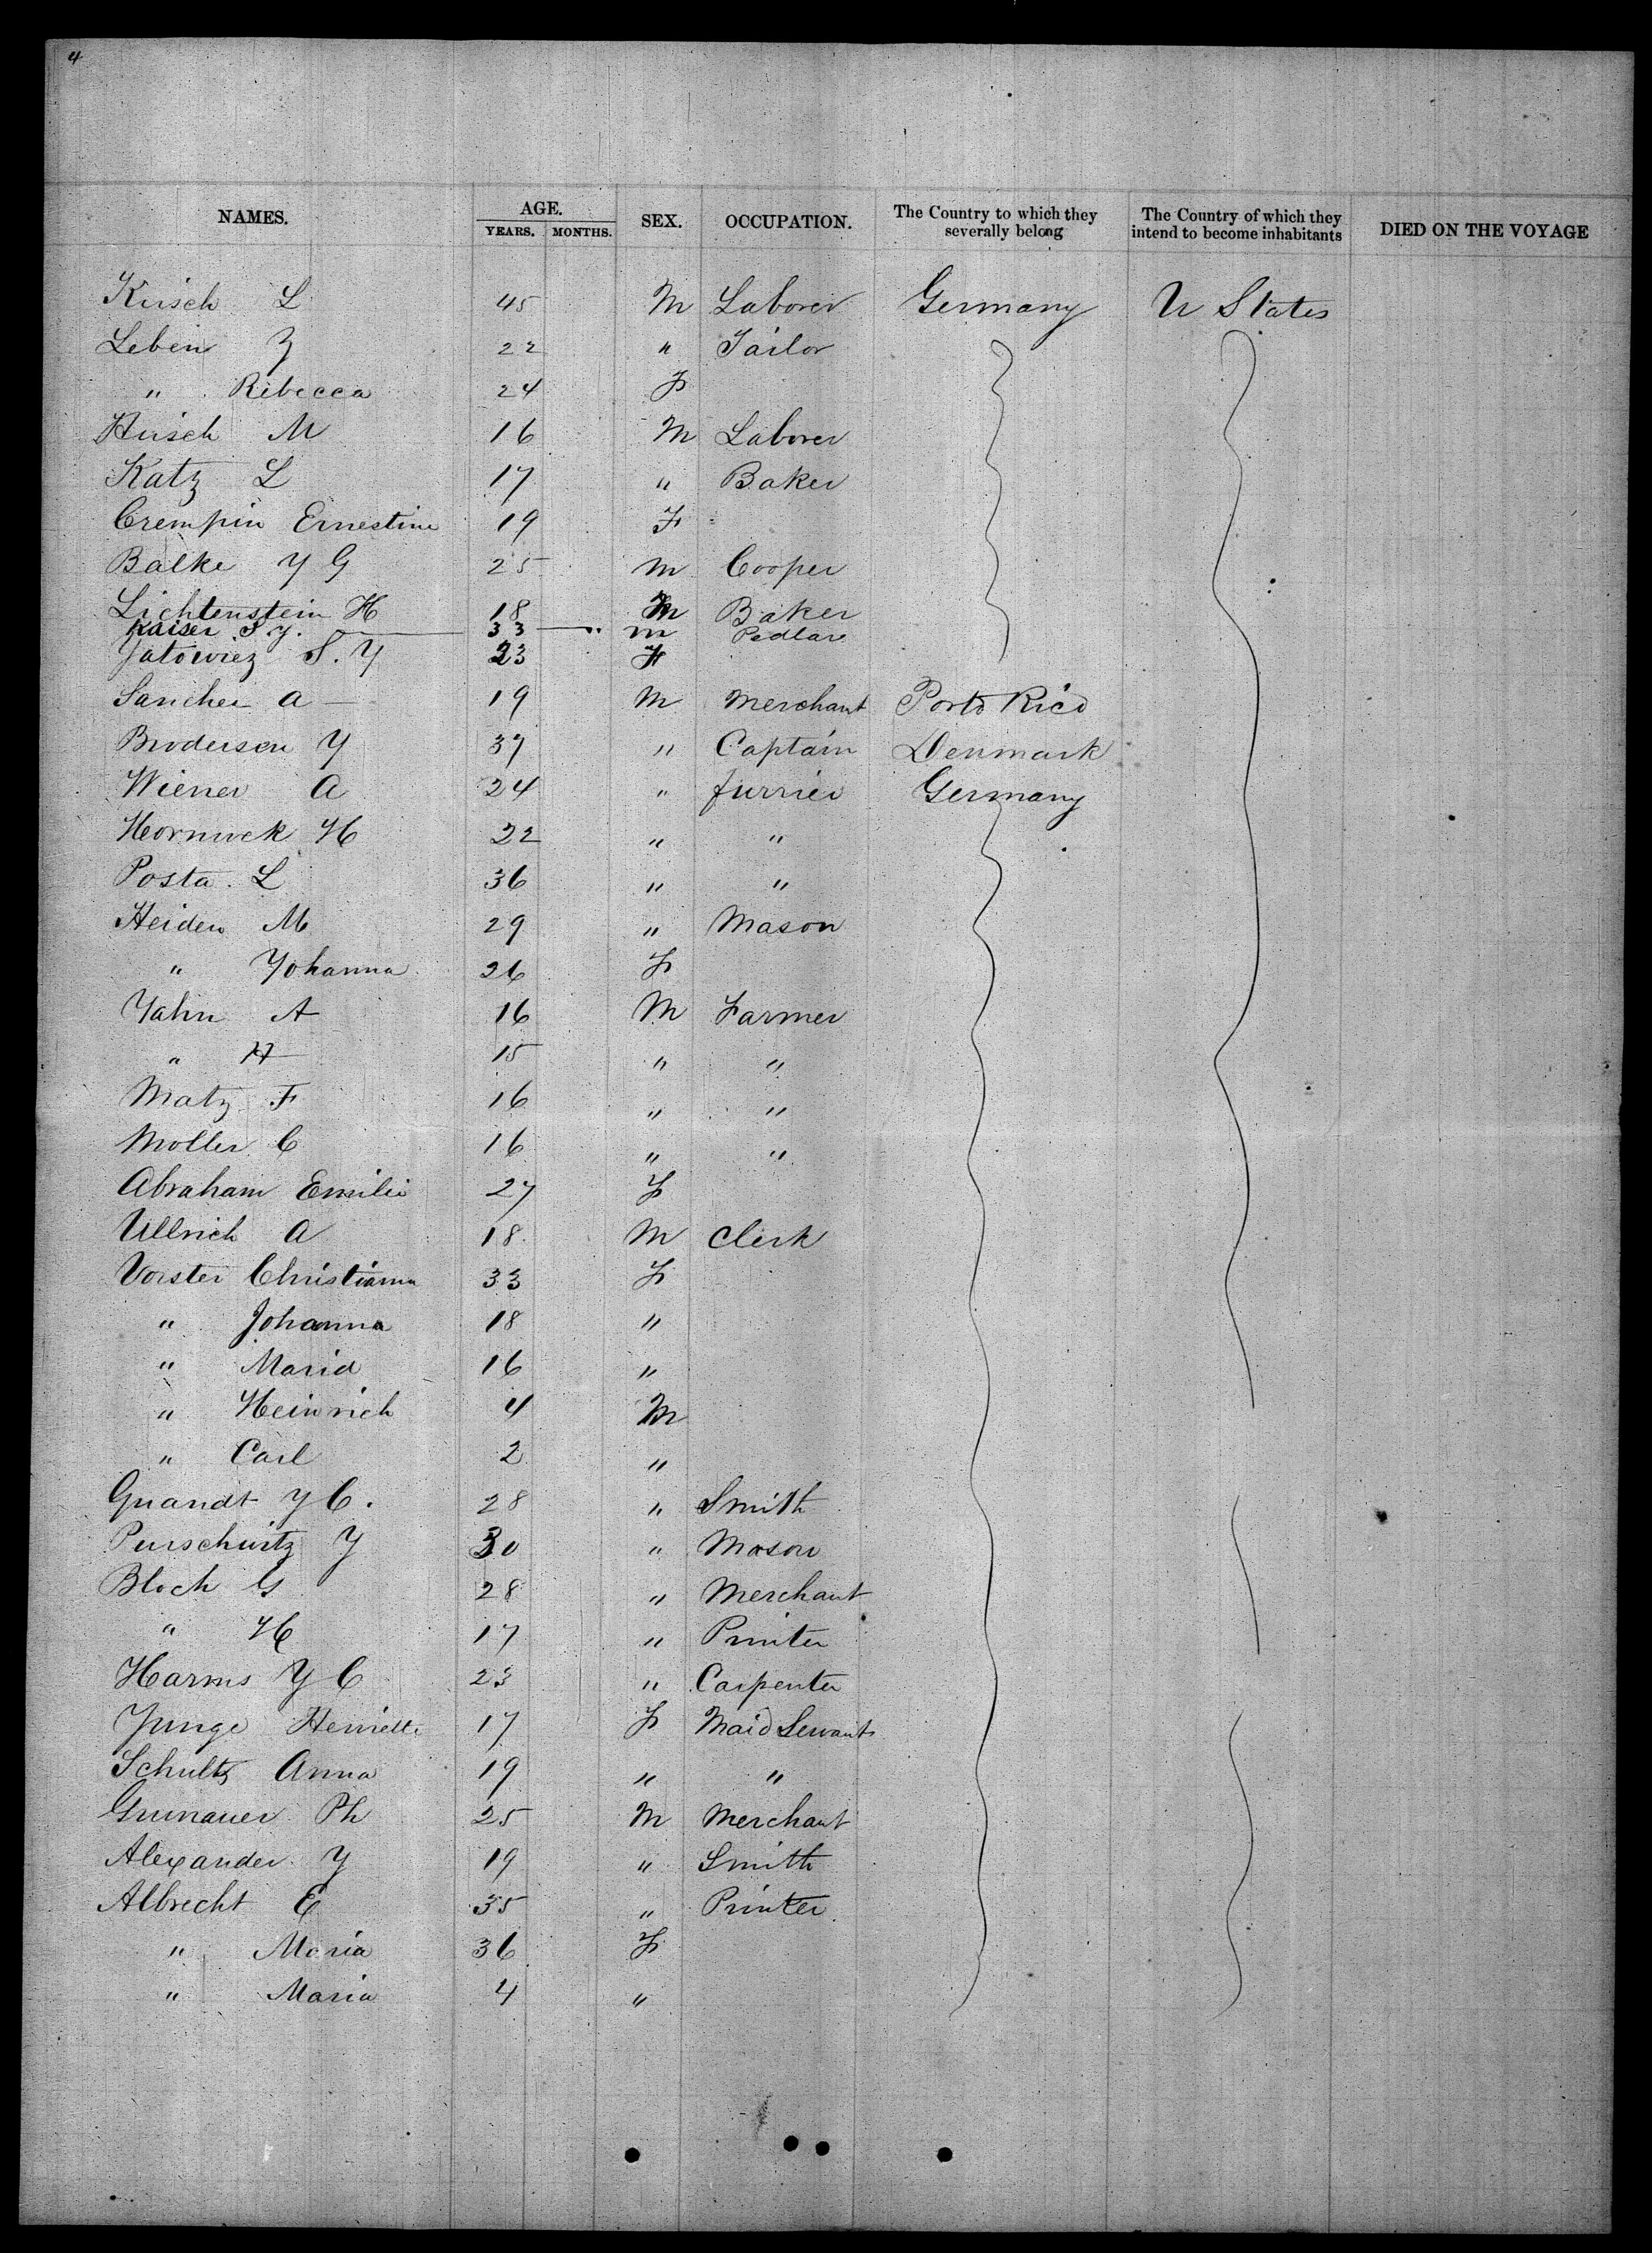 4
NAMES. AGE. SEX. OCCUPATION. The Country to which they severally belong The Country of which they intend to become inhabitants DIED ON THE VOYAGE
YEARS. MONTHS.
Kirsch L 45 M Laborer Germany U States
Leben Z 22 " Tailor
" Rebecca 24 F
Hirsch M 16 M Laborer
Katz L 17 " Baker
Crempin Ernestine 19 F
Balke Y G 25 M Cooper
Lichtenstein H 18 M Baker
Kaiser S. Y. 33 m Pedlar
Jatowiez S. Y 23 F
Sanchez A 19 M Merchant Porto Rico
Brodersen Y 37 " Captain Denmark
Wiener A 24 " furrier Germany
H 22 " "
Posta L 36 " "
Heiden M 29 " Mason
" Yohanna 26 F
Yahn A 16 M Farmer
" H 15 " "
Matz F 16 " "
Moller C 16 " "
Abraham Emilie 27 F
Ullrich A 18 M Clerk
Vorster Christianna 33 F
" Johanna 18 "
" Maria 16 "
" Heinrich 4 M
" Carl 2 "
Y C. 28 " Smith
Purschwitz Y 30 " Mason
Bloch G 28 " Merchant
" H 17 " Printer
Harms Y C 23 " Carpenter
Junge Henriette 17 F Maid Servant
Schultz Anna 19 " "
Grunauer Ph 25 M Merchant
Alexander Y 19 " Smith
Albrecht E 35 " Printer
" Maria 36 F
" Maria 4 "